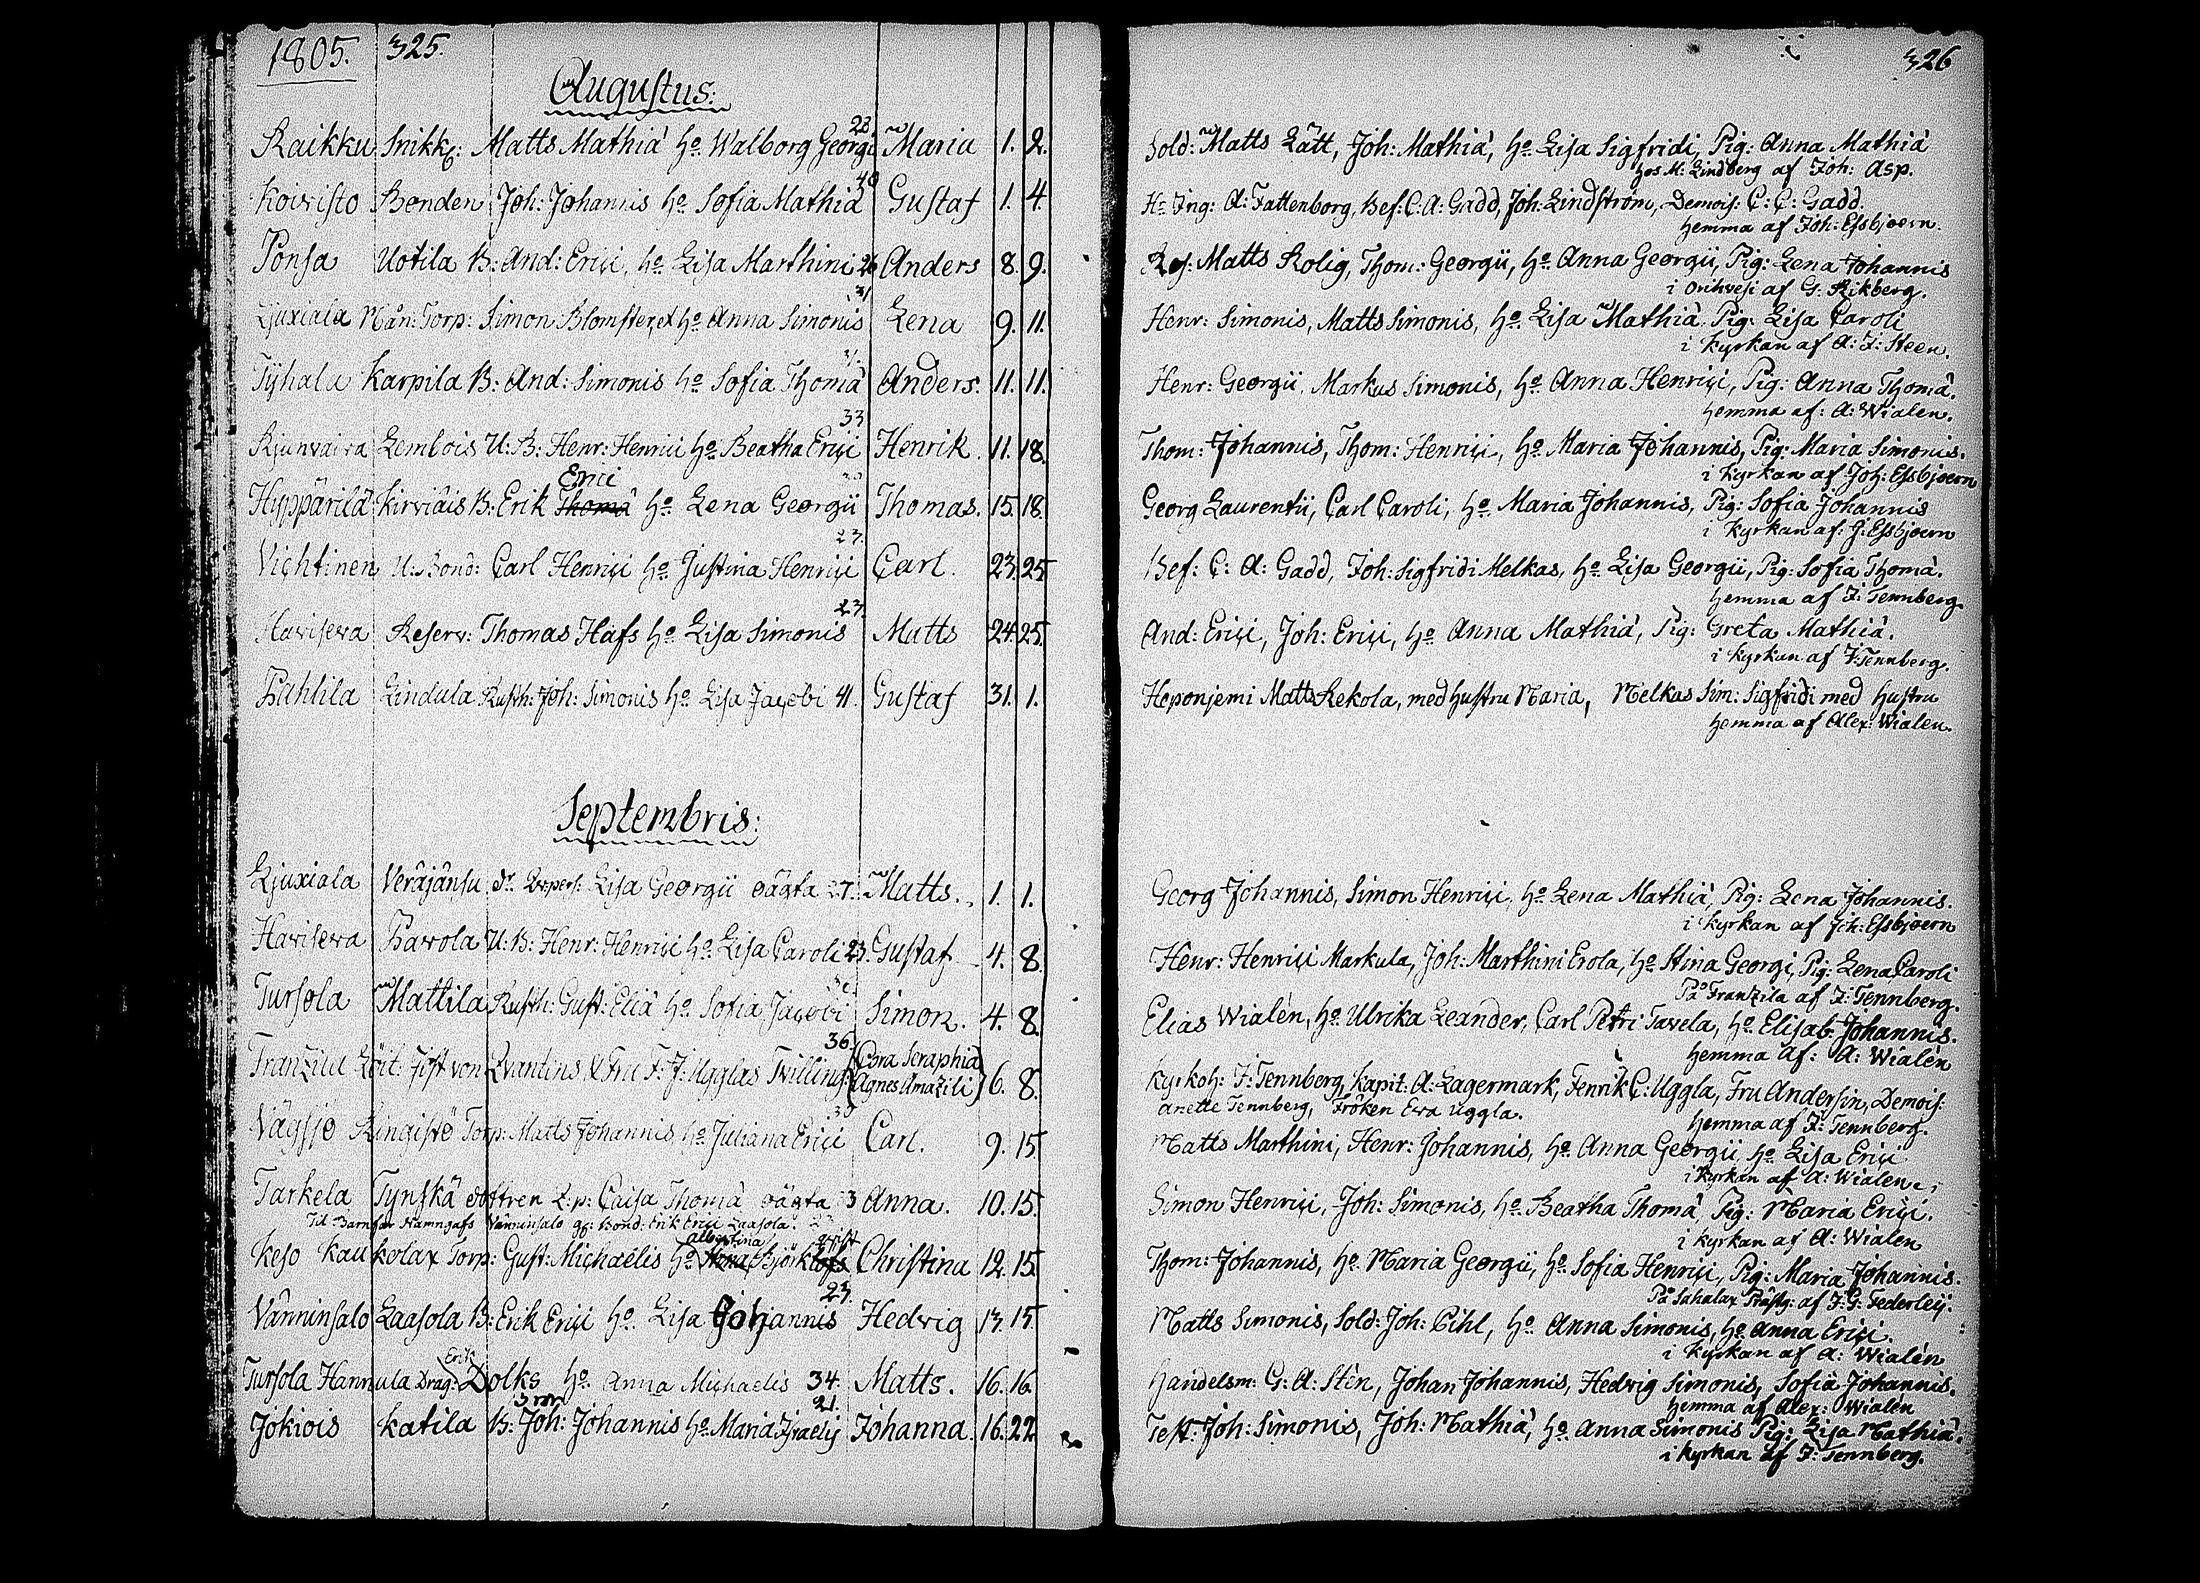 1805. 325.
Augustus:
Raikku Snikk: Matts Mathiæ ho Walborg Georgi 28 Maria 1. 2.
Koivisto Bonden Joh: Johannis ho Sofia Mathiæ 40 Gustaf 1. 4.
Ponsa Uotila B: And: Erici, ho Lisa Marthini 26 Anders 8. 9.
Ljuxiala Mån: Torp: Simon Blomster, et ho Anna Simonis 31 Lena 9. 11.
Tÿhala Karpila B: And: Simonis ho Sofia Thomæ 31. Anders. 11. 11.
Lembois U: B: Henr: Henrici ho Beatha Erici 33 Henrik. 11. 18.
Erici
Hyppärilä Kirviäis B: Erik Thomæ ho Lena Georgii Thomas. 15. 18.
Vichtinen U: Bond: Carl Henrici ho Justina Henrici 23. Carl. 23. 25
Havisewa Reserv: Thomas Hafs ho Lisa Simonis 23. Matts 24. 25.
Pahlila Lindula Rusth: Joh: Simonis ho Lisa Jacobi 41. Gustaf 31. 1.
Septembris:
Ljuxiala Veräjänsu Lisa Georgii oägta 27. Matts. 1. 1.
Havisewa Pawola U: B: Henr: Henrici ho Lisa Caroli 23. Gustaf 4. 8.
Tursola Mattila Rusth: Gust: Eliæ ho Sofia Jacobi Simon. 4. 8.
Franzila Löit: Jost von Qvantins & Fru F: J: Ugglas Tvilling: 36. (Cora Seraphia) (Agnes Amazili) 6. 8.
Vägsjö Ringistö Torp: Matts Johannis ho Juliana Erici 30 Carl. 9. 15
Tarkela Tynskä dottren Q:p: Caisa Thomæ oägta 3 Anna. 10. 15.
Til Barnfar Namngafs Vänninsalo gf: Bond: Erik Erici Laasola.
Albertina qvist
Keso Kaukolax Torp: Gust: Michaelis ho Björklöfs Christina 12. 15.
Vänninsalo Laasola B: Erik Erici ho Lisa Johannis 23. Hedvig 13. 15.
Erik
Tursola Hannula Drag: Dolks ho Anna Michaelis 34. Matts. 16. 16.
Jokiois Katila B: Joh: Johannis ho Maria Israelis 21. Johanna. 16. 22
326
Sold: Matts Lätt, Joh: Mathiæ, ho Lisa Sigfridi, Pig: Anna Mathiæ
hos M: Lindberg af Joh: Asp.
Hr Ing: A: Fattenborg, Bef: C: A: Gadd, Joh: Lindström, Demois: C: C: Gadd.
hemma af Joh: Essbjoern.
Matts Rolig, Thom: Georgii, ho Anna Georgii, Pig: Lena Johannis
i Orihvesi af G: Rikberg.
Henr: Simonis, Matts Simonis, ho Lisa Mathiæ, Pig: Lisa Caroli
i Kyrkan af A: J: Steen.
Henr: Georgii, Markus Simonis, ho Anna Henrici, Pig: Anna Thomæ.
hemma af: A: Wialen.
Thom: Johannis, Thom: Henrici, ho Maria Johannis, Pig: Maria Simonis.
i Kyrkan af Joh: Essbjoern
Georg Laurentii, Carl Caroli, ho Maria Johannis, Pig: Sofia Johannis
i Kyrkan af: J: Essbjoern
Bef: C: A: Gadd, Joh: Sigfridi Melkas, ho Lisa Georgii, Pig: Sofia Thomæ.
hemma af J: Tennberg.
And: Erici, Joh: Erici, ho Anna Mathiæ, Pig: Greta Mathiæ.
i Kyrkan af J: Tennberg.
Heponjemi Matts Rekola, med hustru Maria, Melkas Sim: Sigfridi med hustru
hemma af Alex: Wialen.
Georg Johannis, Simon Henrici, ho Lena Mathiæ, Pig: Lena Johannis.
i Kyrkan af Joh: Essbjoern
Henr: Henrici Markula, Joh: Marthini Erola, ho Stina Georgi, Pig: Lena Caroli
På Franzila af J: Tennberg.
Elias Wialén, ho Ulrika Leander, Carl Petri Tavela, ho Elisab: Johannis.
hemma af: A: Wialén
Kyrkoh: J: Tennberg, Kapit: A: Lagermark, Fenrik C: Uggla, Fru Andersin, Demois:
Anette Tennberg, Fröken Eva Uggla. hemma af J: Tennberg.
Matts Marthini, Henr: Johannis, ho Anna Georgii, ho Lisa Erici
i Kyrkan af A: Wialen.
Simon Henrici, Joh: Simonis, ho Beatha Thomæ, Pig: Maria Erici.
i Kyrkan af A: Wialen
Thom: Johannis, ho Maria Georgii, ho Sofia Henrici, Pig: Maria Johannis.
På Sahalax Prästg: af J: G: Federleij.
Matts Simonis, Sold: Joh: Pihl, ho Anna Simonis, ho Anna Erici.
i Kyrkan af A: Wialén
Handelsm: G: A: Stén, Johan Johannis, Hedvig Simonis, Sofia Johannis.
hemma af Alex: Wialén
Joh: Simonis, Joh: Mathiæ, ho Anna Simonis Pig: Lisa Mathiæ.
i Kyrkan af J: Tennberg.